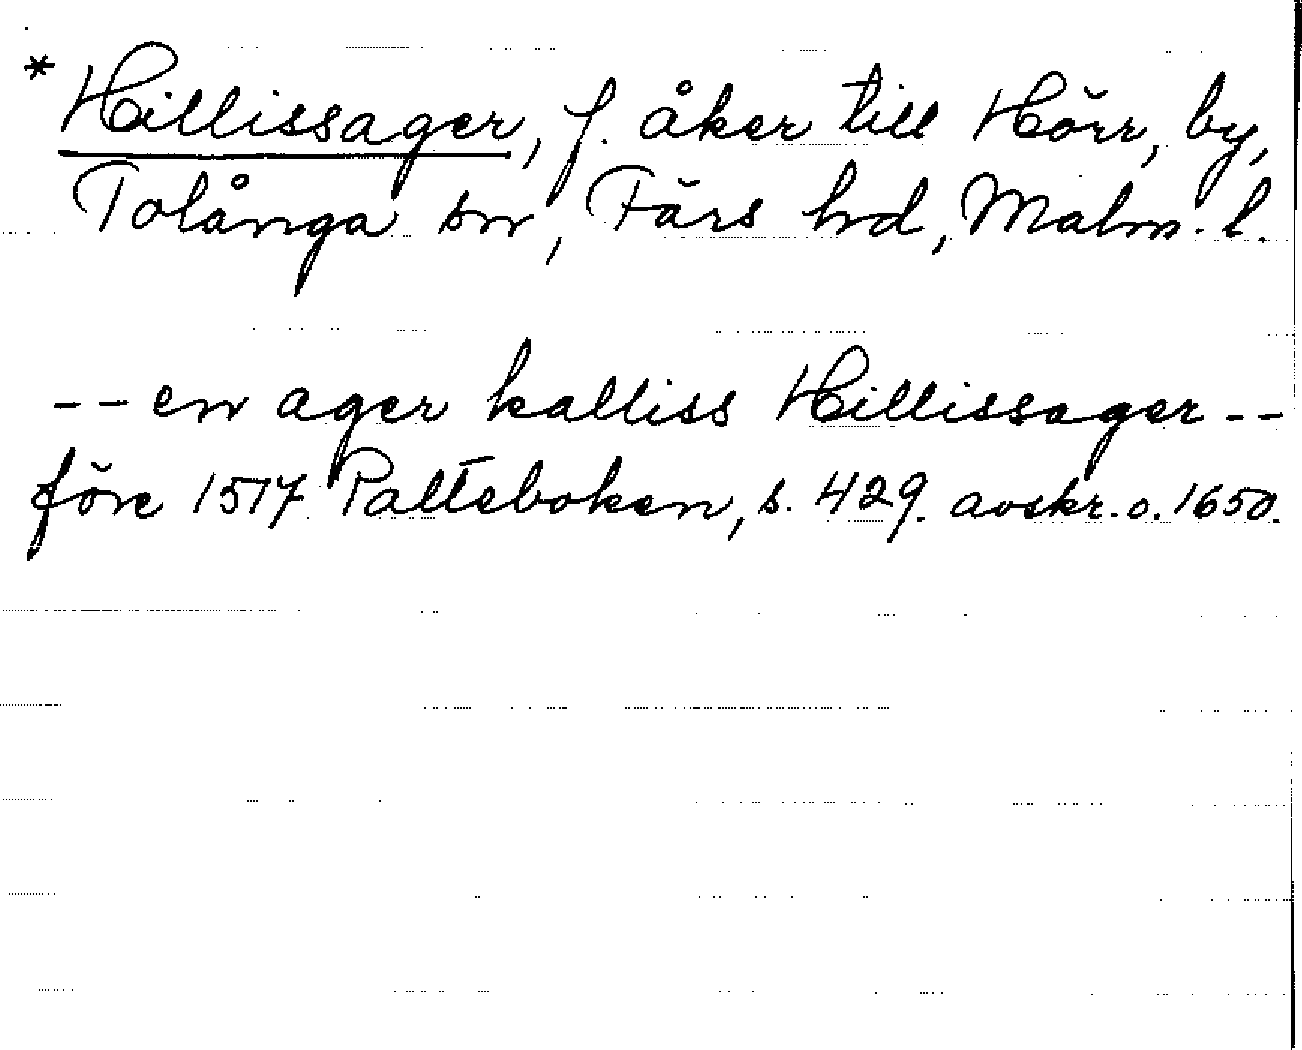 * Hillissager, f. åker till Hörr, by,
Tolånga sn, Färs hd, Malm. l.
-- en ager kalliss Hillissager --
före 1517 Palteboken, s. 429. avskr. o. 1650.